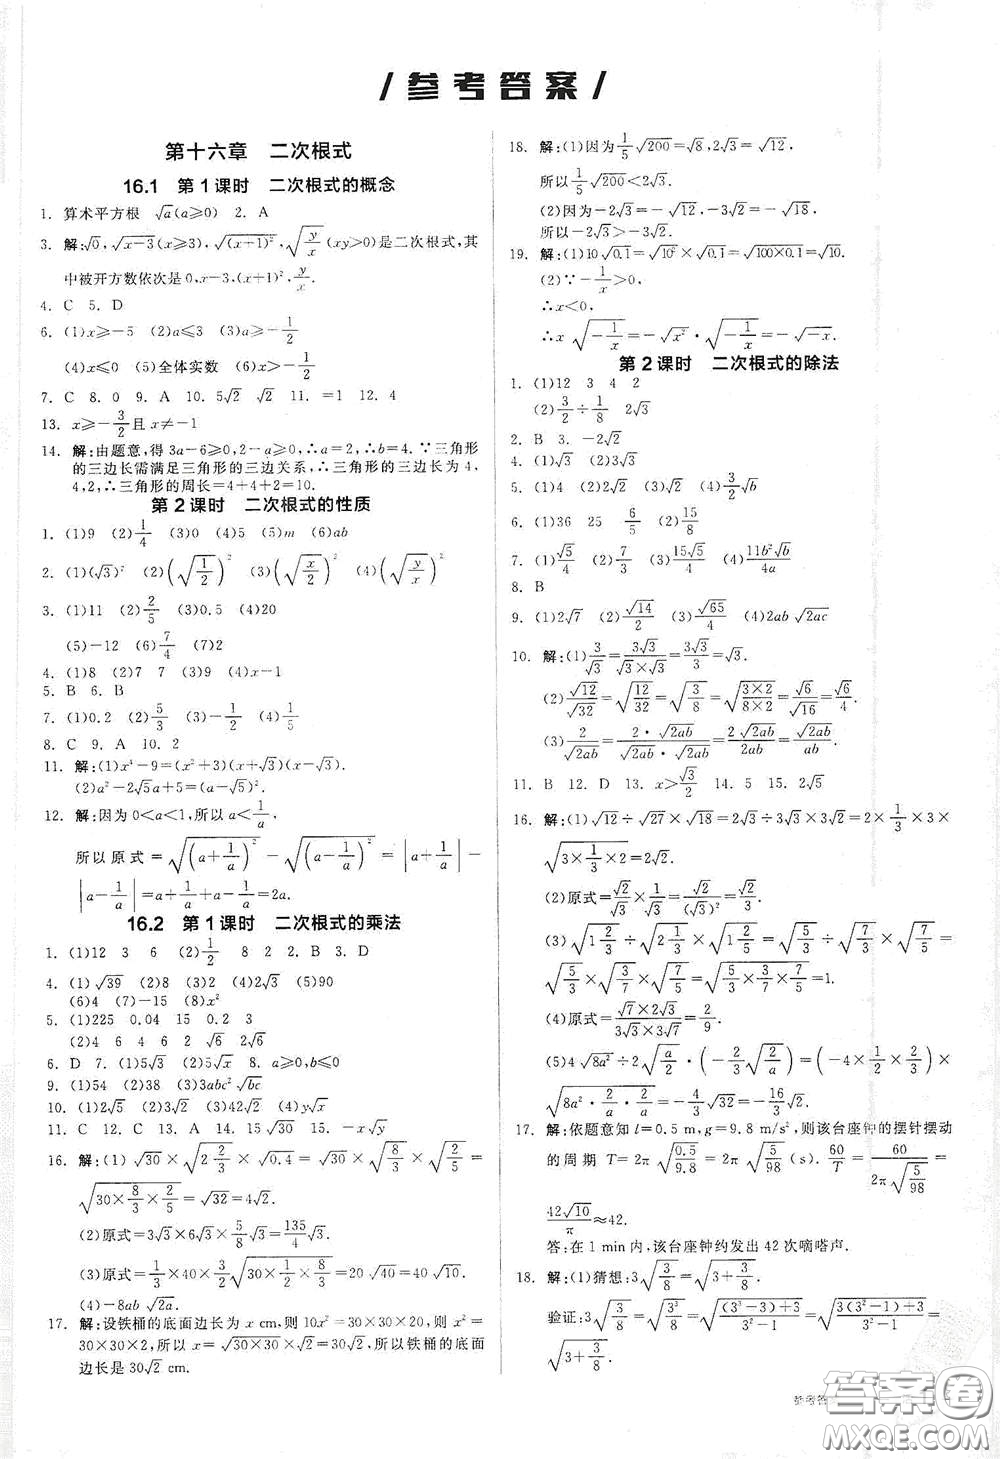 参考答案
第十六章 二次根式
16.1 第1课时 二次根式的概念
1. 算术平方根 √a(a≥0) 2. A
3. 解:√0,√(x-3)(x≥3),√((x+1)²),√(y/x)(xy>0)是二次根式,其
中被开方数依次是0,x-3,(x+1)²,y/x.
4. C 5. D
6. (1)x≥-5 (2)a≤3 (3)a≥-1/2
(4)x≤0 (5)全体实数 (6)x>-1/2
7. C 8. 0 9. A 10. 5√2 √2 11. =1 12. 4
13. x≥-3/2且x≠-1
14. 解:由题意,得3a-6≥0,2-a≥0,∴a=2,∴b=4.∵三角形
的三边长需满足三角形的三边关系,∴三角形的三边长为4,
4,2,∴三角形的周长=4+4+2=10.
第2课时 二次根式的性质
1. (1)9 (2)1/4 (3)0 (4)5 (5)m (6)ab
2. (1)(√3)² (2)(√(1/2))² (3)(√(x/3))² (4)(√(y/x))²
3. (1)11 (2)2/5 (3)0.5 (4)20
(5)-12 (6)7/4 (7)2
4. (1)8 (2)7 7 (3)9 (4)x-1
5. B 6. B
7. (1)0.2 (2)5/3 (3)-1/2 (4)1/5
8. C 9. A 10. 2
11. 解:(1)x⁴-9=(x²+3)(x+√3)(x-√3).
(2)a²-2√5a+5=(a-√5)².
12. 解:因为0<a<1,所以a<1/a.
所以原式=√((a+1/a)²)-√((a-1/a)²)=|a+1/a|-
|a-1/a|=a+1/a+a-1/a=2a.
16.2 第1课时 二次根式的乘法
1. (1)12 3 6 (2)1/2 8 2 2. B 3. D
4. (1)√39 (2)8 (3)2 (4)2√3 (5)90
(6)4 (7)-15 (8)x²
5. (1)225 0.04 15 0.2 3
(2)4 6 4 6 2 √6 2√6
6. D 7. (1)5√3 (2)5√x 8. a≥0,b≤0
9. (1)54 (2)38 (3)3abc²√(bc)
10. (1)2√5 (2)2√3 (3)42√2 (4)y√x
11. C 12. C 13. A 14. 15√30 15. -x√y
16. 解:(1)√30×√(2 2/3)×√0.4=√30×√(8/3)×√(2/5)=
√(30×8/3×2/5)=√32=4√2.
(2)原式=3√3×6√3×5/8√3=135/4√3.
(3)原式=1/3×40×√(30×1/3)=20√40=40√10.
(4)-8ab√(2a).
17. 解:设铁桶的底面边长为x cm,则10x²=30×30×20,则x²=
30×30×2,所以x=√(30×30)×√2=30√2,所以铁桶的底面
边长是30√2 cm.
18. 解:(1)因为1/5√200=√8,2√3=√12,
所以1/5√200<2√3.
(2)因为-2√3=-√12,-3√2=-√18,
所以-2√3>-3√2.
19. 解:(1)10√0.1=√(10²)×√0.1=√(100×0.1)=√10.
(2)∵-1/x>0,
∴x<0,
∴x√(-1/x)=-√(x²)·√(-1/x)=-√(-x).
第2课时 二次根式的除法
1. (1)12 3 4 2
(2)3/2÷1/8 2√3
2. B 3. -2√3
4. (1)√5 (2)√3
5. (1)4 (2)2√2 (3)√5 (4)3/2√2
6. (1)36 25 6/5 (2)15/8
7. (1)√5/4 (2)7/3 (3)15√5/4 (4)11b²√b/4a
8. B
9. (1)2√7 (2)√14/2 (3)√65/4 (4)2ab√(2ac)
10. 解:(1)3/√3=3√3/(√3×√3)=3√3/3=√3.
(2)√12/√32=√(12/32)=√(3/8)=√((3×2)/(8×2))=√6/√16=√6/4.
(3)2/√(2ab)=2·√(2ab)/(√(2ab)·√(2ab))=2√(2ab)/2ab=√(2ab)/ab.
11. B 12. D 13. x>√3/2 14. 5 15. 2√5
16. 解:(1)√12÷√27×√18=2√3÷3√3×3√2=2×1/3×3×
√(3×1/3×2)=2√2.
(2)原式=√2/√3×1/√3=√2/(√3)²=√2/3.
(3)√(1 2/3)÷√(2 1/3)×√(1 2/5)=√(5/3)÷√(7/3)×√(7/5)=
√(5/3)×√(3/7)×√(7/5)=√(5/3×3/7×7/5)=1.
(4)原式=√7×2√3/(3√3×3√7)=2/9.
(5)4√(8a²)÷2√(a/3)·(-2/3√(2/a))=(-4×1/2×2/3)×
√(8a²·3/a·2/a)=-4/3√32=-16/3√3.
17. 解:依题意知l=0.5 m,g=9.8 m/s²,则该台座钟的摆针摆动
的周期T=2π√(0.5/9.8)=2π√(5/98)(s).60/T=60/(2π√(5/98))=
42√10/π≈42.
答:在1 min内,该台座钟约发出42次嘀嗒声.
18. 解:(1)猜想:3√(3/8)=√(3+3/8).
验证:3√(3/8)=√(3³/8)=√(((3³-3)+3)/(3²-1))=√((3(3²-1)+3)/(3²-1))=
√(3+3/8).
参考答
答案卷
MXQE.COM